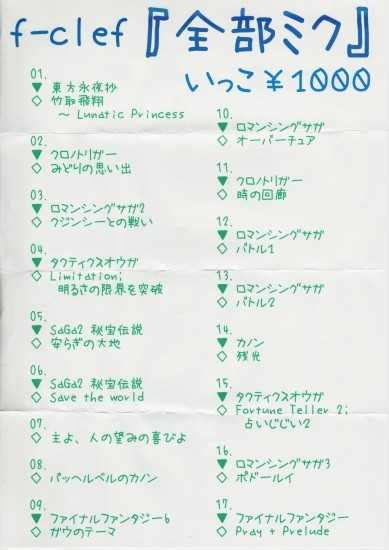 f-clef『全部ミク』
いっこ￥1000
01.
▼ 東方永夜抄
◇ 竹取飛翔
～ Lunatic Princess
02.
▼ クロノトリガー
◇ みどりの思い出
03.
▼ ロマンシングサガ2
◇ クジンシーとの戦い
04.
▼ タクティクスオウガ
◇ Limitation;
明るさの限界を突破
05.
▼ SaGa2 秘宝伝説
◇ 安らぎの大地
06.
▼ SaGa2 秘宝伝説
◇ Save the world
07.
◇ 主よ、人の望みの喜びよ
08.
◇ パッヘルベルのカノン
09.
▼ ファイナルファンタジー6
◇ ガウのテーマ
10.
▼ ロマンシングサガ
◇ オーバーチュア
11.
▼ クロノトリガー
◇ 時の回廊
12.
▼ ロマンシングサガ
◇ バトル1
13.
▼ ロマンシングサガ
◇ バトル2
14.
▼ カノン
◇ 残光
15.
▼ タクティクスオウガ
◇ Fortune Teller 2;
占いじじい2
16.
▼ ロマンシングサガ3
◇ ポドールイ
17.
▼ ファイナルファンタジー
◇ Pray + Prelude